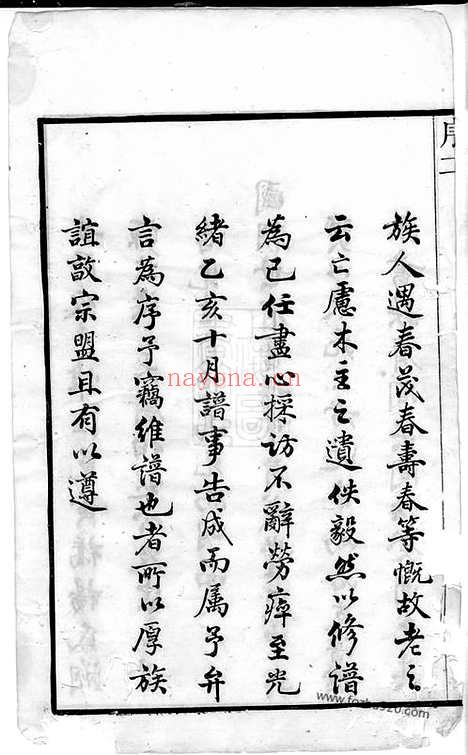 序二
族人遇春茂春壽春等慨故老之
云亡慮木主之遺佚毅然以修譜
為己任盡心採訪不辭勞瘁至光
緒乙亥十月譜事告成而属予弁
言為序予竊維譜也者所以厚族
誼敦宗盟且有以遵
nayona.cn